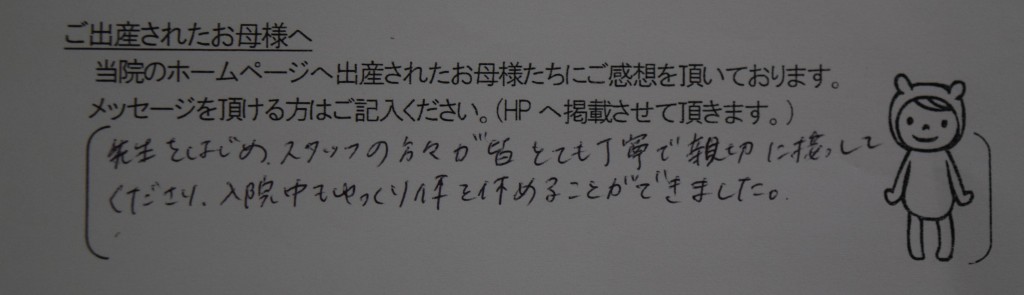 ご出産されたお母様へ
当院のホームページへ出産されたお母様たちにご感想を頂いております。
メッセージを頂ける方はご記入ください。(HPへ掲載させて頂きます。)
先生をはじめ、スタッフの方々が皆とても丁寧で親切に接して
くださり、入院中もゆっくり体を休めることができました。